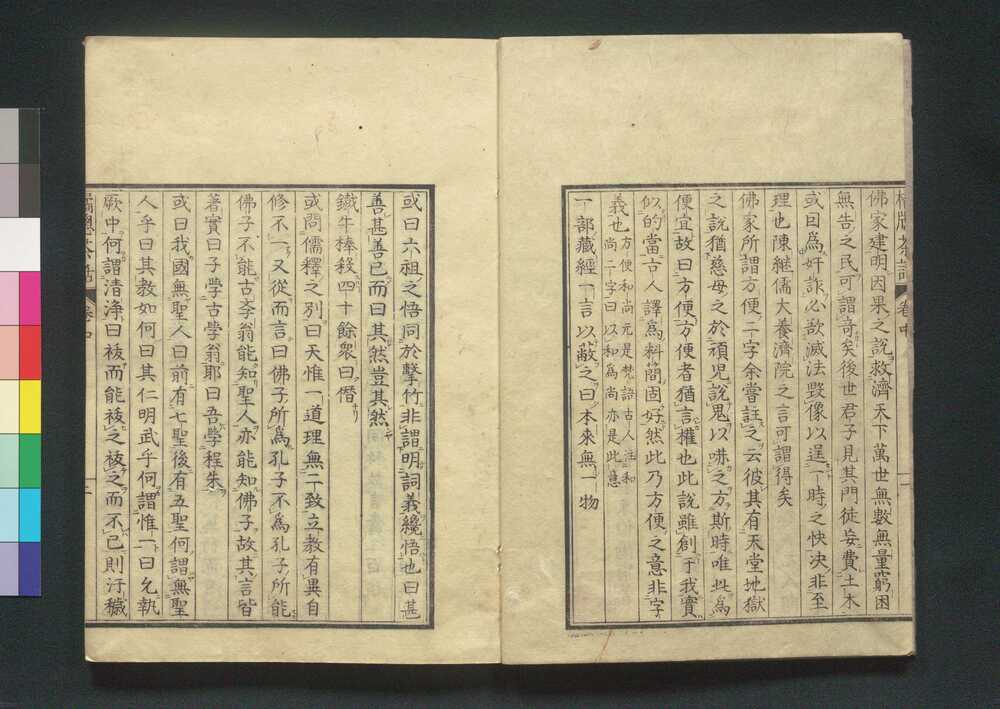 佛家建明因果之說救濟天下萬世無數無量窮困
無告之民可謂奇矣後世君子見其門徒妄費土木
或曰為奸詐必欲滅法毀像以逞一時之快決非至
理也陳繼儒大養濟院之言可謂得矣
佛家所謂方便二字余嘗註之云彼其有天堂地獄
之說猶慈母之於頑兒說鬼以嚇之方斯時唯此為
便宜故曰方便方便者猶言權也此說雖創于我實
似的當古人譯為料簡固好然此乃方便之意非字
義也方便和尚元是梵語古人注和
尚二字曰以和為尚亦是此意
一部藏經一言以蔽之曰本來無一物
或曰六祖之悟同於擊竹非謂明詞義纔悟也曰甚
善甚善已而曰其然豈其然
鐵牛棒殺四十餘衆曰僭
或問儒釋之別曰天惟一道理無二致立教有異自
修不一又從而言曰佛子所為孔子不為孔子所能
佛子不能古夲翁能知聖人亦能知佛子故其言皆
著實曰子學古學翁耶曰吾學程朱
或曰我國無聖人曰前有七聖後有五聖何謂無聖
人乎曰其教如何曰其仁明武乎何謂惟一曰允執
厥中何謂清淨曰祓而能祓之祓之而不已則汙穢